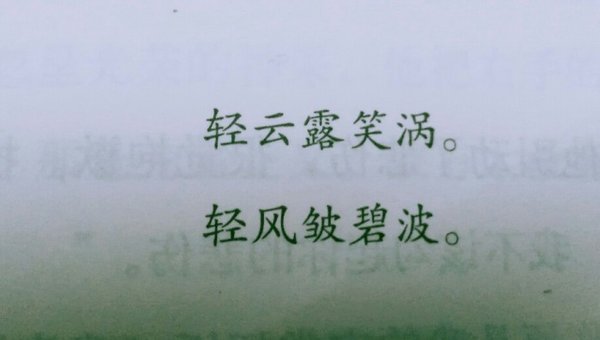 轻云露笑涡。
轻风皱碧波。